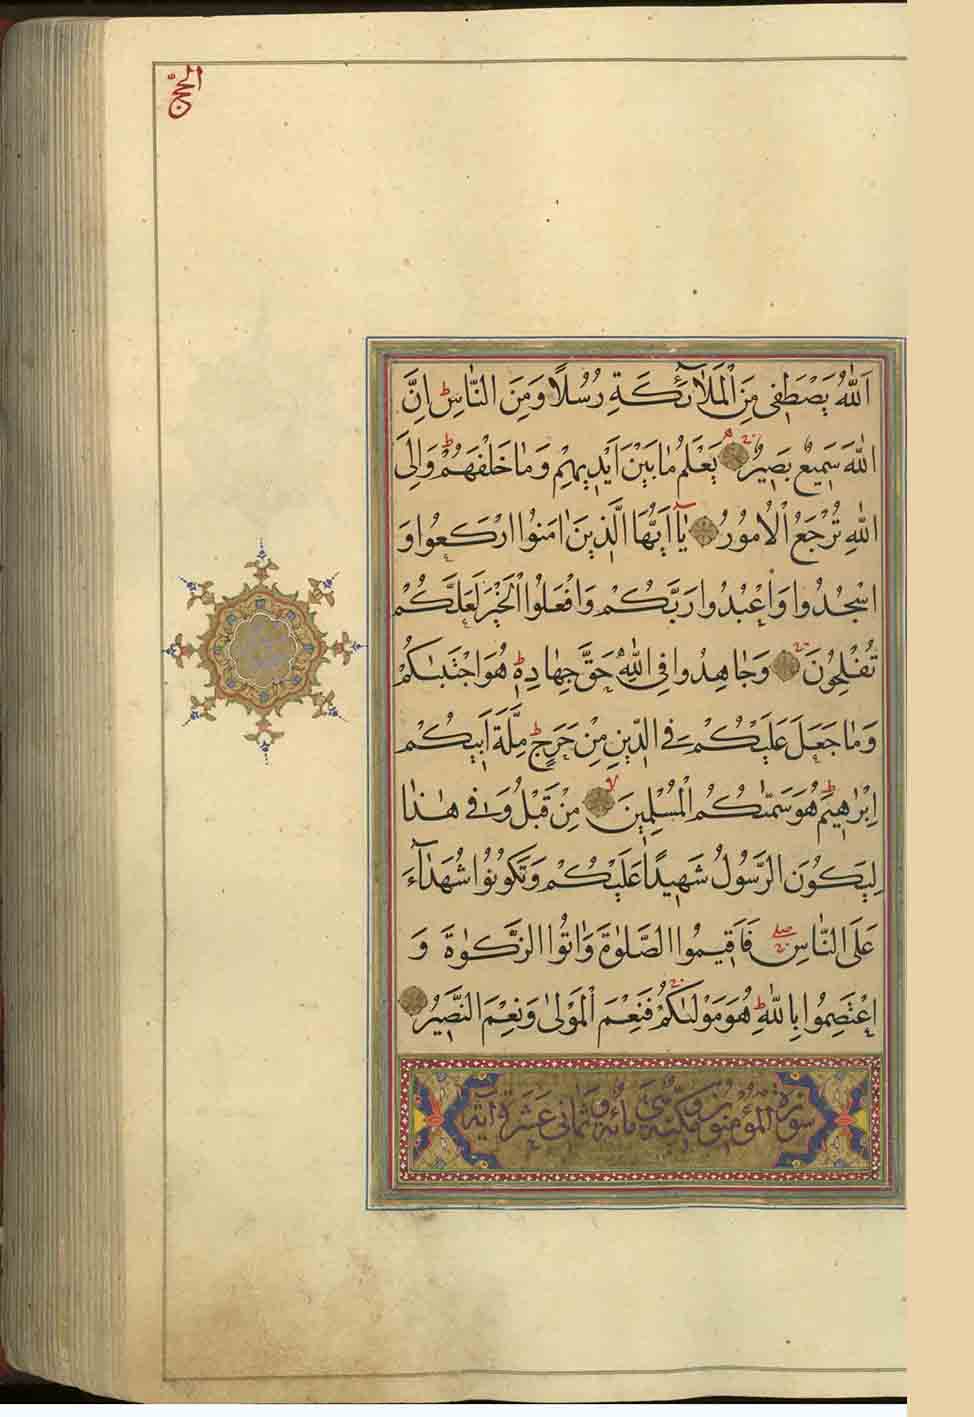 الحج
اَللّٰهُ يَصْطَفِى مِنَ الْمَلَآئِكَةِ رُسُلًا وَمِنَ النَّاسِ ط اِنَّ
اللّٰهَ سَمِيعٌ بَصِيرٌ يَعْلَمُ مَا بَيْنَ اَيْدِيهِمْ وَمَا خَلْفَهُمْ ط وَاِلَى
اللّٰهِ تُرْجَعُ الْاُمُورُ يَآ اَيُّهَا الَّذِينَ اٰمَنُوا ارْكَعُوا وَ
اسْجُدُوا وَاعْبُدُوا رَبَّكُمْ وَافْعَلُوا الْخَيْرَ لَعَلَّكُمْ
تُفْلِحُونَ وَجَاهِدُوا فِى اللّٰهِ حَقَّ جِهَادِهِ ط هُوَ اجْتَبٰىكُمْ
وَمَا جَعَلَ عَلَيْكُمْ فِى الدِّينِ مِنْ حَرَجٍ ط مِلَّةَ اَبِيكُمْ
اِبْرٰهِيمَ ط هُوَ سَمّٰىكُمُ الْمُسْلِمِينَ مِنْ قَبْلُ وَفِى هٰذَا
لِيَكُونَ الرَّسُولُ شَهِيدًا عَلَيْكُمْ وَتَكُونُوا شُهَدَآءَ
عَلَى النَّاسِ صلى فَاَقِيمُوا الصَّلٰوةَ وَاٰتُوا الزَّكٰوةَ وَ
اعْتَصِمُوا بِاللّٰهِ ط هُوَ مَوْلٰىكُمْ فَنِعْمَ الْمَوْلٰى وَنِعْمَ النَّصِيرُ
سورة المؤمنون مكية وهى مائة وثمانى عشرة آية